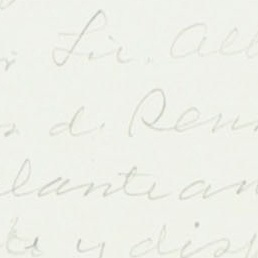 Sir. Alb
d. Renn
lantean
te y disp